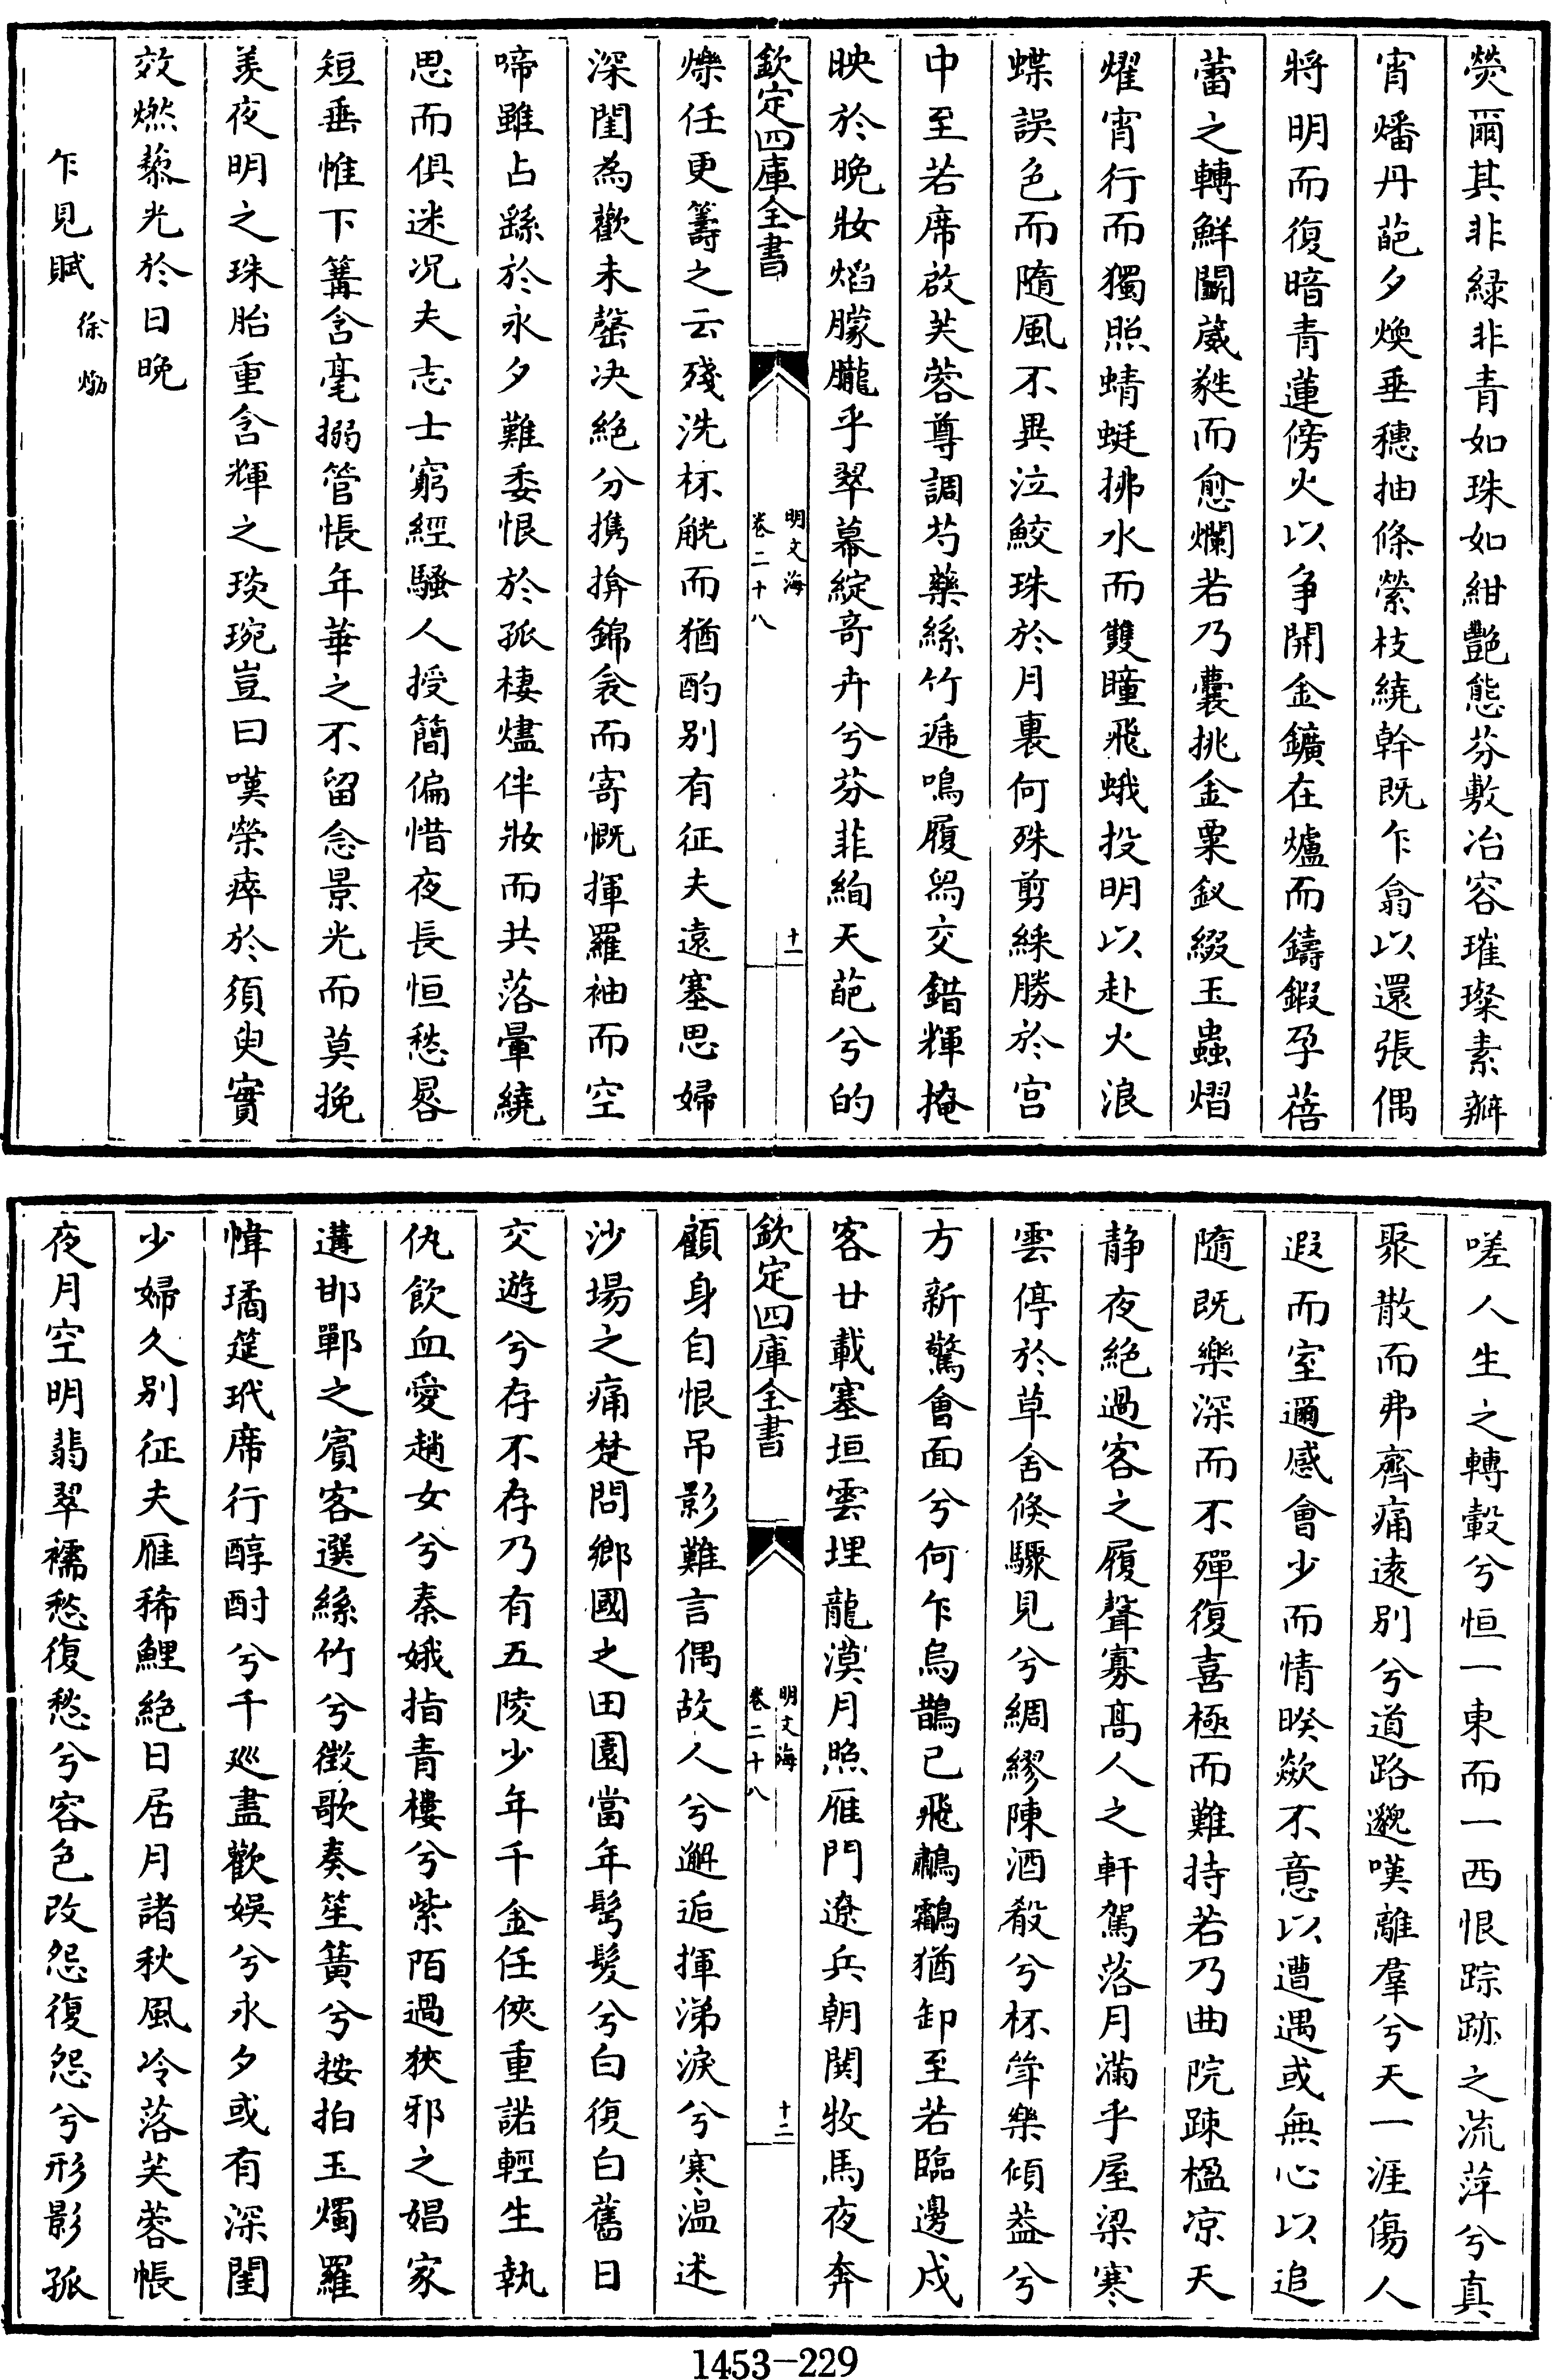 熒爾其非緑非青如珠如紺艷態芬敷冶容璀璨素瓣
宵燔丹葩夕煥垂穗抽條縈枝繞幹既乍翕以還張偶
將明而復暗青蓮傍火以争開金鑛在爐而鑄鍜孕蓓
蕾之轉鮮鬭葳蕤而愈爛若乃囊挑金粟釵綴玉蟲熠
燿宵行而獨照蜻蜓拂水而雙瞳飛蛾投明以赴火浪
蝶誤色而隨風不異泣鮫珠於月裏何殊剪綵勝於宫
中至若席啟芙蓉尊調芍藥絲竹遞鳴履舄交錯輝掩
映於晚妝焰朦朧乎翠幕綻奇卉兮芬菲絢天葩兮的
欽定四庫全書
明文海
卷二十八
十一
爍任更籌之云殘洗杯觥而猶酌别有征夫遠塞思婦
深閨為歡未罄决絶分携搚錦衾而寄慨揮羅袖而空
啼雖占繇於永夕難委恨於孤棲燼伴妝而共落暈繞
思而俱迷况夫志士窮經騷人授簡偏惜夜長恒愁晷
短垂惟下篝含毫搦管悵年華之不留念景光而莫挽
羡夜明之珠胎重含輝之琰琬豈曰嘆榮瘁於須臾實
效燃藜光於日晚
乍見賦
徐𤊹
嗟人生之轉轂兮恒一東而一西恨踪跡之流萍兮真
聚散而弗齊痛遠别兮道路邈嘆離羣兮天一涯傷人
遐而室邇感會少而情暌歘不意以遭遇或無心以追
隨既樂深而不殫復喜極而難持若乃曲院踈楹凉天
静夜絶過客之履聲寡髙人之軒駕落月滿乎屋梁寒
雲停於草舍倐驟見兮綢繆陳酒殽兮杯斝樂傾葢兮
方新驚會面兮何乍烏鵲已飛鷫鸘猶卸至若臨邊戍
客廿載塞垣雲埋龍漠月照雁門遼兵朝闗牧馬夜奔
欽定四庫全書
明文海
卷二十八
十二
顧身自恨吊影難言偶故人兮邂逅揮涕淚兮寒温述
沙場之痛楚問鄉國之田園當年髩髮兮白復白舊日
交遊兮存不存乃有五陵少年千金任俠重諾輕生執
仇飲血愛趙女兮秦娥指青樓兮紫陌過狹邪之娼家
遘邯鄲之賓客選絲竹兮徴歌奏笙簧兮按拍玉燭羅
幃璚筵玳席行醇酎兮千廵盡歡娛兮永夕或有深閨
少婦久别征夫雁稀鯉絶日居月諸秋風冷落芙蓉帳
夜月空明翡翠襦愁復愁兮容色改怨復怨兮形影孤
1453-229